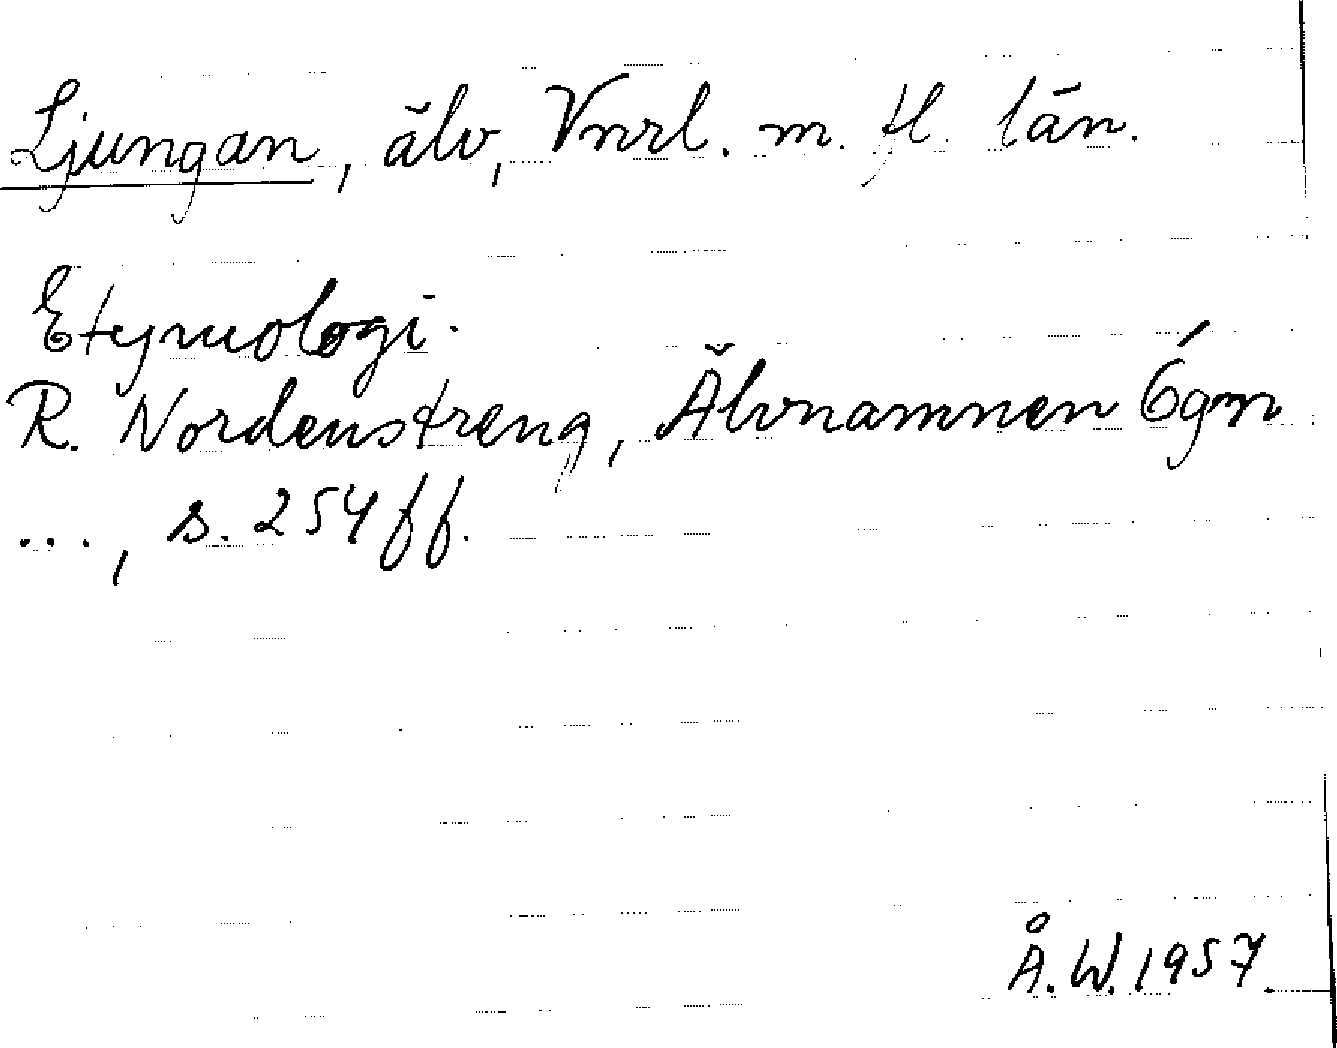 Ljungan, älv, Vnrl. m. fl. län.
Etymologi.
R. Nordenstreng, Älvnamnen Ógn
..., s. 254 ff.
Å.W. 1957.